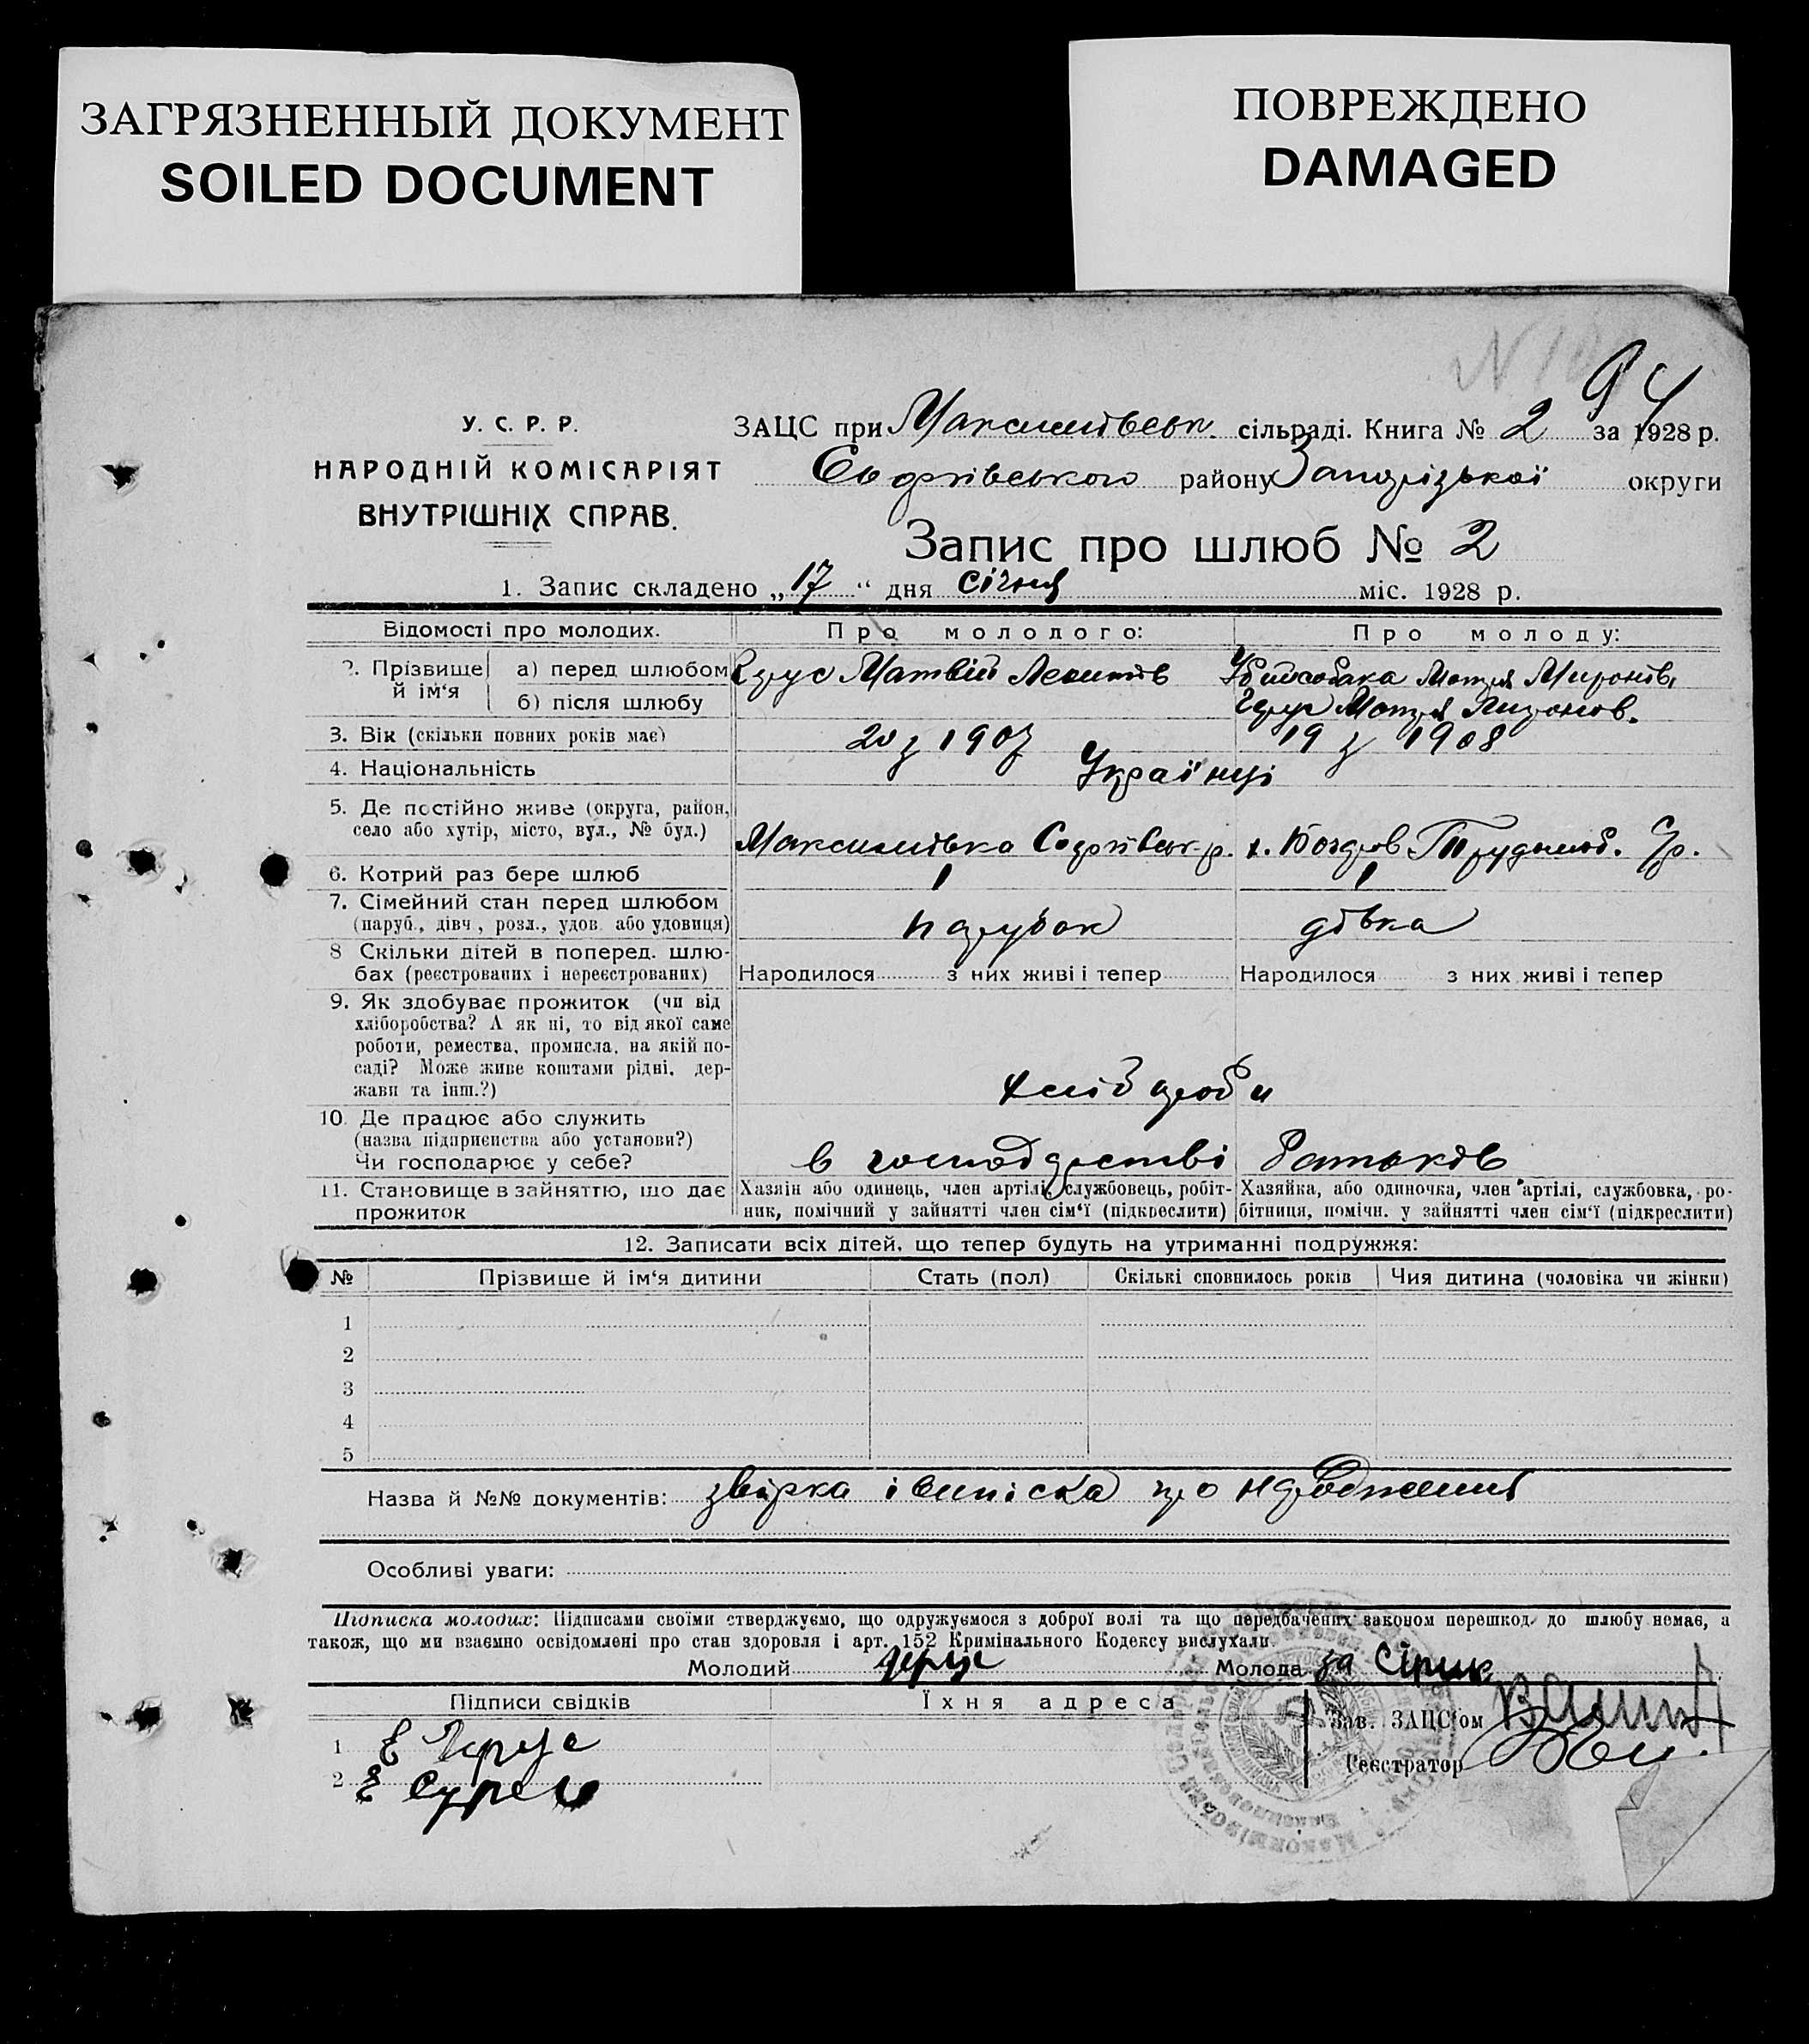 ЗАГРЯЗНЕННЫЙ ДОКУМЕНТ
SOILED DOCUMENT
ПОВРЕЖДЕНО
DAMAGED
94
У. С. Р. Р.
НАРОДНІЙ КОМІСАРІЯТ
ВНУТРІШНІХ СПРАВ.
ЗАЦС при Максимівськ. сільраді. Книга № 2 за 1928 р.
Софіївського району Запорізької округи
Запис про шлюб № 2
1. Запис складено „17“ дня січня міс. 1928 р.
Відомості про молодих. Про молодого: Про молоду:
2. Прізвище й ім‘я а) перед шлюбом Матвій Мотря Миронів.
б) після шлюбу Мотря
3. Вік (скільки повних років має) 20 з 1907 19 з 1908
4. Національність Українці
5. Де постійно живе (округа, район,
село або хутір, місто, вул., № буд.) Максимівка Софіївськ. р. х.
6. Котрий раз бере шлюб 1 1
7. Сімейний стан перед шлюбом
(паруб., дівч., розл., удов. або удовиця) парубок дівка
8 Скільки дітей в поперед. шлю-
бах (реєстрованих і нереєстрованих) Народилося з них живі і тепер Народилося з них живі і тепер
9. Як здобуває прожиток (чи від
хліборобства? А як ні, то від якої саме
роботи, ремества, промисла, на якій по-
саді? Може живе коштами рідні, дер-
жави та інш.?) хлібороби
10. Де працює або служить
(назва підприємства або установи?)
Чи господарює у себе? в господарстві батьків
11. Становище в зайняттю, що дає
прожиток
Хазяін або одинець, член артілі, службовець, робіт-
ник, помічний у зайнятті член сім‘ї (підкреслити)
Хазяйка, або одиночка, член артілі, службовка, ро-
бітниця, помічн. у зайнятті член сім‘ї (підкреслити)
12. Записати всіх дітей, що тепер будуть на утриманні подружжя:
№ Прізвище й ім‘я дитини Стать (пол) Скількі сповнилось років Чия дитина (чоловіка чи жінки)
1
2
3
4
5
Назва й №№ документів: звірка і виписка про народження
Особливі уваги:
Підписка молодих: Підписами своїми стверджуємо, що одружуємося з доброї волі та що передбачених законом перешкод до шлюбу немає, а
також, що ми взаємно освідомлені про стан здоровля і арт. 152 Кримінального Кодексу вислухали
Молодий Молода за Сірик
Підписи свідків Їхня адреса
Зав. ЗАЦС‘ом
1 Е
Реєстратор
2 Е